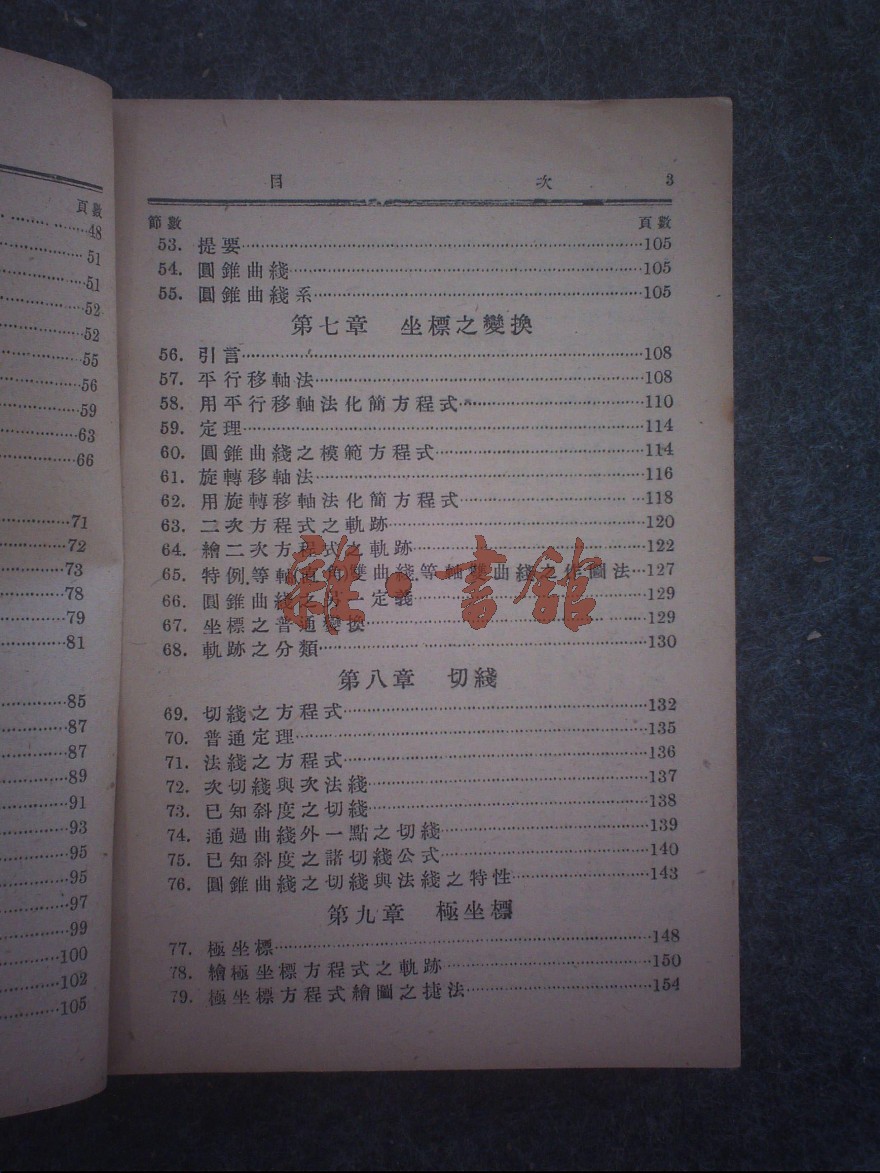 頁數
48
51
51
52
52
55
56
59
63
66
71
72
73
78
79
81
85
87
87
89
91
93
95
95
97
99
100
102
105
目 次 3
節數 頁數
53. 提要 105
54. 圓錐曲綫 105
55. 圓錐曲綫系 105
第七章 坐標之變換
56. 引言 108
57. 平行移軸法 108
58. 用平行移軸法化簡方程式 110
59. 定理 114
60. 圓錐曲綫之模範方程式 114
61. 旋轉移軸法 116
62. 用旋轉移軸法化簡方程式 118
63. 二次方程式之軌跡 120
64. 繪二次方程式之軌跡 122
65. 特例,等軸(直角)雙曲綫,等軸雙曲綫之作圖法 127
66. 圓錐曲綫之另一定義 129
67. 坐標之普通變換 129
68. 軌跡之分類 130
第八章 切綫
69. 切綫之方程式 132
70. 普通定理 135
71. 法綫之方程式 136
72. 次切綫與次法綫 137
73. 已知斜度之切綫 138
74. 通過曲綫外一點之切綫 139
75. 已知斜度之諸切綫公式 140
76. 圓錐曲綫之切綫與法綫之特性 143
第九章 極坐標
77. 極坐標 148
78. 繪極坐標方程式之軌跡 150
79. 極坐標方程式繪圖之捷法 154
雜·書館